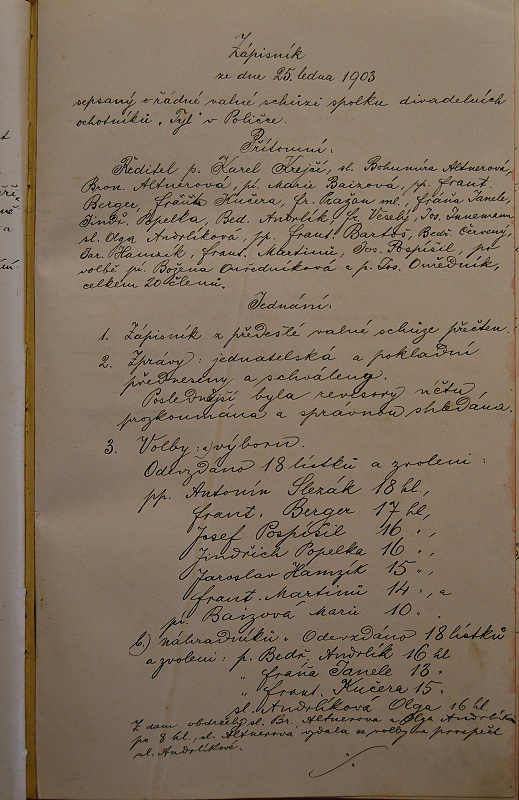 Zápisník
ze dne 25. ledna 1903
sepsaný o řádné valné schůzi spolku divadelních
ochotníků „Tyl“ v Poličce.
Přítomni:
Ředitel p. Karel Krejčí, sl. Bohumíra Altnerová,
Bron. Altnerová, pí. Marie Baizová, pp. Frant.
Berger, Fráňa Kučera, Fr. Pražan ml., Fráňa Janele,
Jindř. Popelka, Bed. Andrlík, Fr. Veselý, Jos. Innemann
sl. Olga Andrlíková, pp. Frant. Bartoš, Bedř. Červený,
Jar. Hamzík, Frant. Martinů, Jos. Pospíšil, po
volbě pí. Božena Ondředníková a p. Jos. Ondředník,
celkem 20 členů.
Jednání:
1. Zápisník z předešlé valné schůze přečten.
2. Zprávy: jednatelská a pokladní
předneseny a schváleny.
Poslednější byla revisory účtů
prozkoumána a správnou shledána.
3. Volby: a) výboru.
Odevzdáno 18 lístků a zvoleni:
pp. Antonín Slezák 18 hl.,
Frant. Berger 17 hl,
Josef Pospíšil 16 „,
Jindřich Popelka 16 „,
Jaroslav Hamzík 15 „,
Frant. Martinů 14 „, a
pí. Baizová Marie 10 „
b) náhradníků. Odevzdáno 18 lístků
a zvoleni: p. Bedř. Andrlík 16 hl
„ Fráňa Janele 13 „
„ Frant. Kučera 15 „
sl. Andrlíková Olga 16 hl.
Z dam obdržely sl. Br. Altnerova a Olga Andrlíkova
po 8 hl., sl. Altnerova vzdala se volby ve prospěch
sl. Andrlíkové.